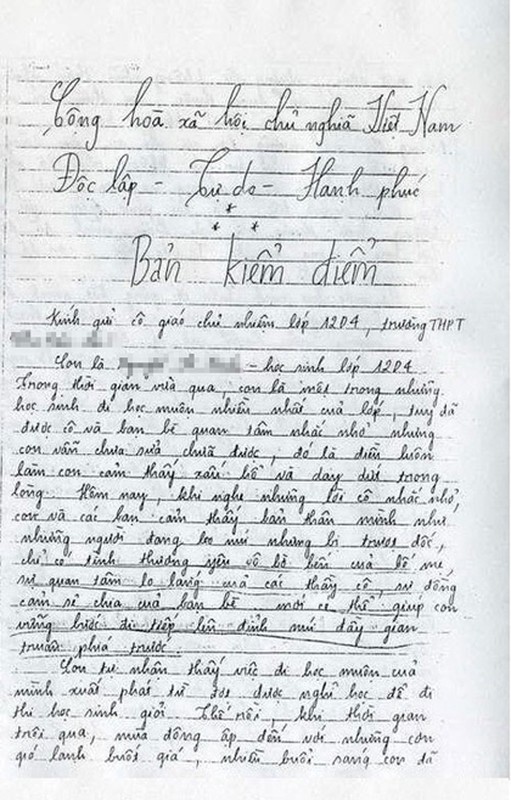 Cộng hoà xã hội chủ nghĩa Việt Nam
Độc lập - Tự do - Hạnh phúc
Bản kiểm điểm
Kính gửi cô giáo chủ nhiệm lớp 12D4, trường THPT
Con là - học sinh lớp 12D4
Trong thời gian vừa qua, con là một trong những
học sinh đi học muộn nhiều nhất của lớp, tuy đã
được cô và bạn bè quan tâm nhắc nhở nhưng
con vẫn chưa sửa chữa được, đó là điều luôn
làm con cảm thấy xấu hổ và day dứt trong
lòng. Hôm nay, khi nghe những lời cô nhắc nhở,
con và các bạn cảm thấy bản thân mình như
những người đang leo núi nhưng bị trượt dốc,
chỉ có tình thương yêu vô bờ bến của bố mẹ
sự quan tâm lo lắng của các thầy cô, sự đồng
cảm sẻ chia của bạn bè mới có thể giúp con
vững bước đi tiếp lên đỉnh núi đầy gian
truân phía trước.
Con tự nhận thấy việc đi học muộn của
mình xuất phát từ đợt được nghỉ học để đi
thi học sinh giỏi. Thế rồi, khi thời gian
trôi qua, mùa đông ập đến với những cơn
gió lạnh buốt giá, nhiều buổi sáng con đã